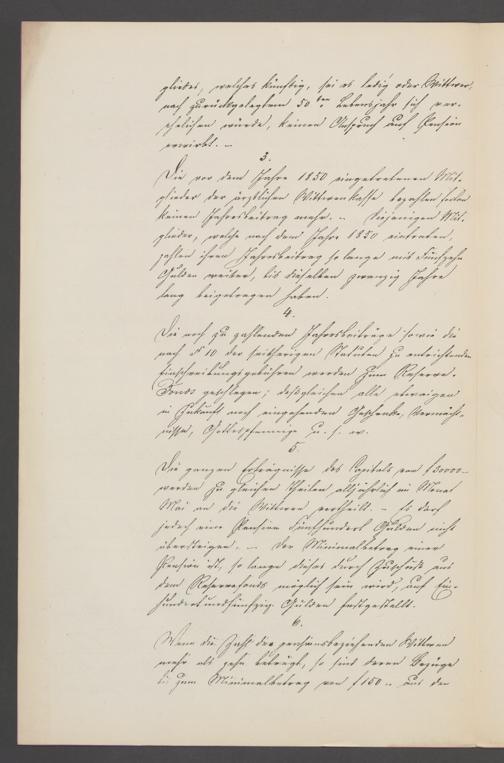 gliedes, welches künftig, sei es ledig oder Wittwer,
nach zurückgelegtem 50ten Lebensjahr sich ver-
ehelichen würde, keinen Anspruch auf Pension
erwirbt. –
3.
Die vor dem Jahre 1850 eingetretenen Mit-
glieder der ärztlichen Wittwenkasse bezahlen
keinen Jahresbeitrag mehr. – Diejenigen Mit-
glieder, welche nach dem Jahre 1850 eintraten,
zahlen ihren Jahresbeitrag so lange mit Fünfzehn
Gulden weiter, bis dieselben zwanzig Jahre
lang beigetragen haben.
4.
Die noch zu zahlenden Jahresbeiträge sowie die
nach § 10 der seitherigen Statuten zu entrichtenden
Einschreibungsgebühren werden zum Reserve-
Fonds geschlagen; desgleichen alle etwaigen
in Zukunft noch eingehenden Geschenke, Vermächt-
nisse, Gottespfennige u. s. w.
5.
Die ganzen Erträgnisse des Capitals von f 50000 –
werden zu gleichen Theilen alljährlich im Monat
Mai an die Wittwen vertheilt. – Es darf
jedoch eine Pension Fünfhundert Gulden nicht
übersteigen. – Der Minimalbetrag einer
Pension ist, so lange dieses durch Zuschuß aus
dem Reservefonds möglich sein wird, auf Ein-
hundertundfünfzig Gulden festgestellt.
6.
Wenn die Zahl der pensionsbeziehenden Wittwen
mehr als zehn beträgt, so sind deren Bezüge
bis zum Minimalbetrag von f 150 – aus den